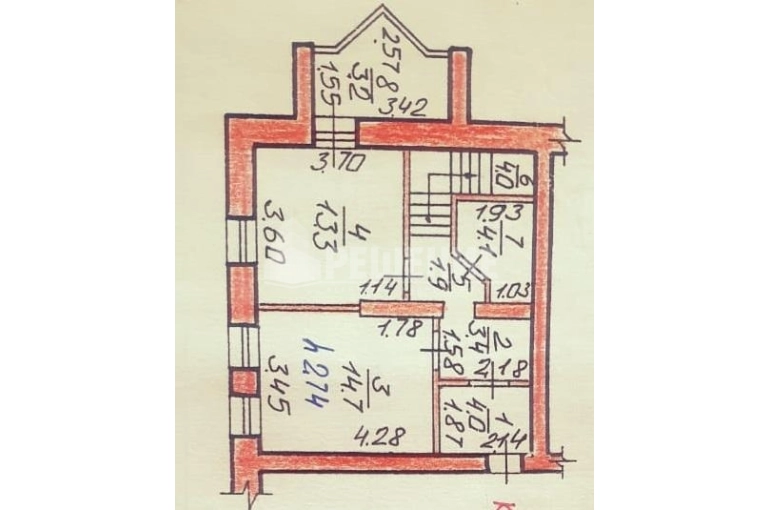 2.57
8
3.2
1.55
3.42
3.70
4
13.3
3.60
6
4.0
1.93
7
4.1
1.03
5
1.9
1.14
1.78
2
3.4
1.58
2.18
3
14.7
3.45
h 2.74
4.28
1
4.0
1.87
2.14
К